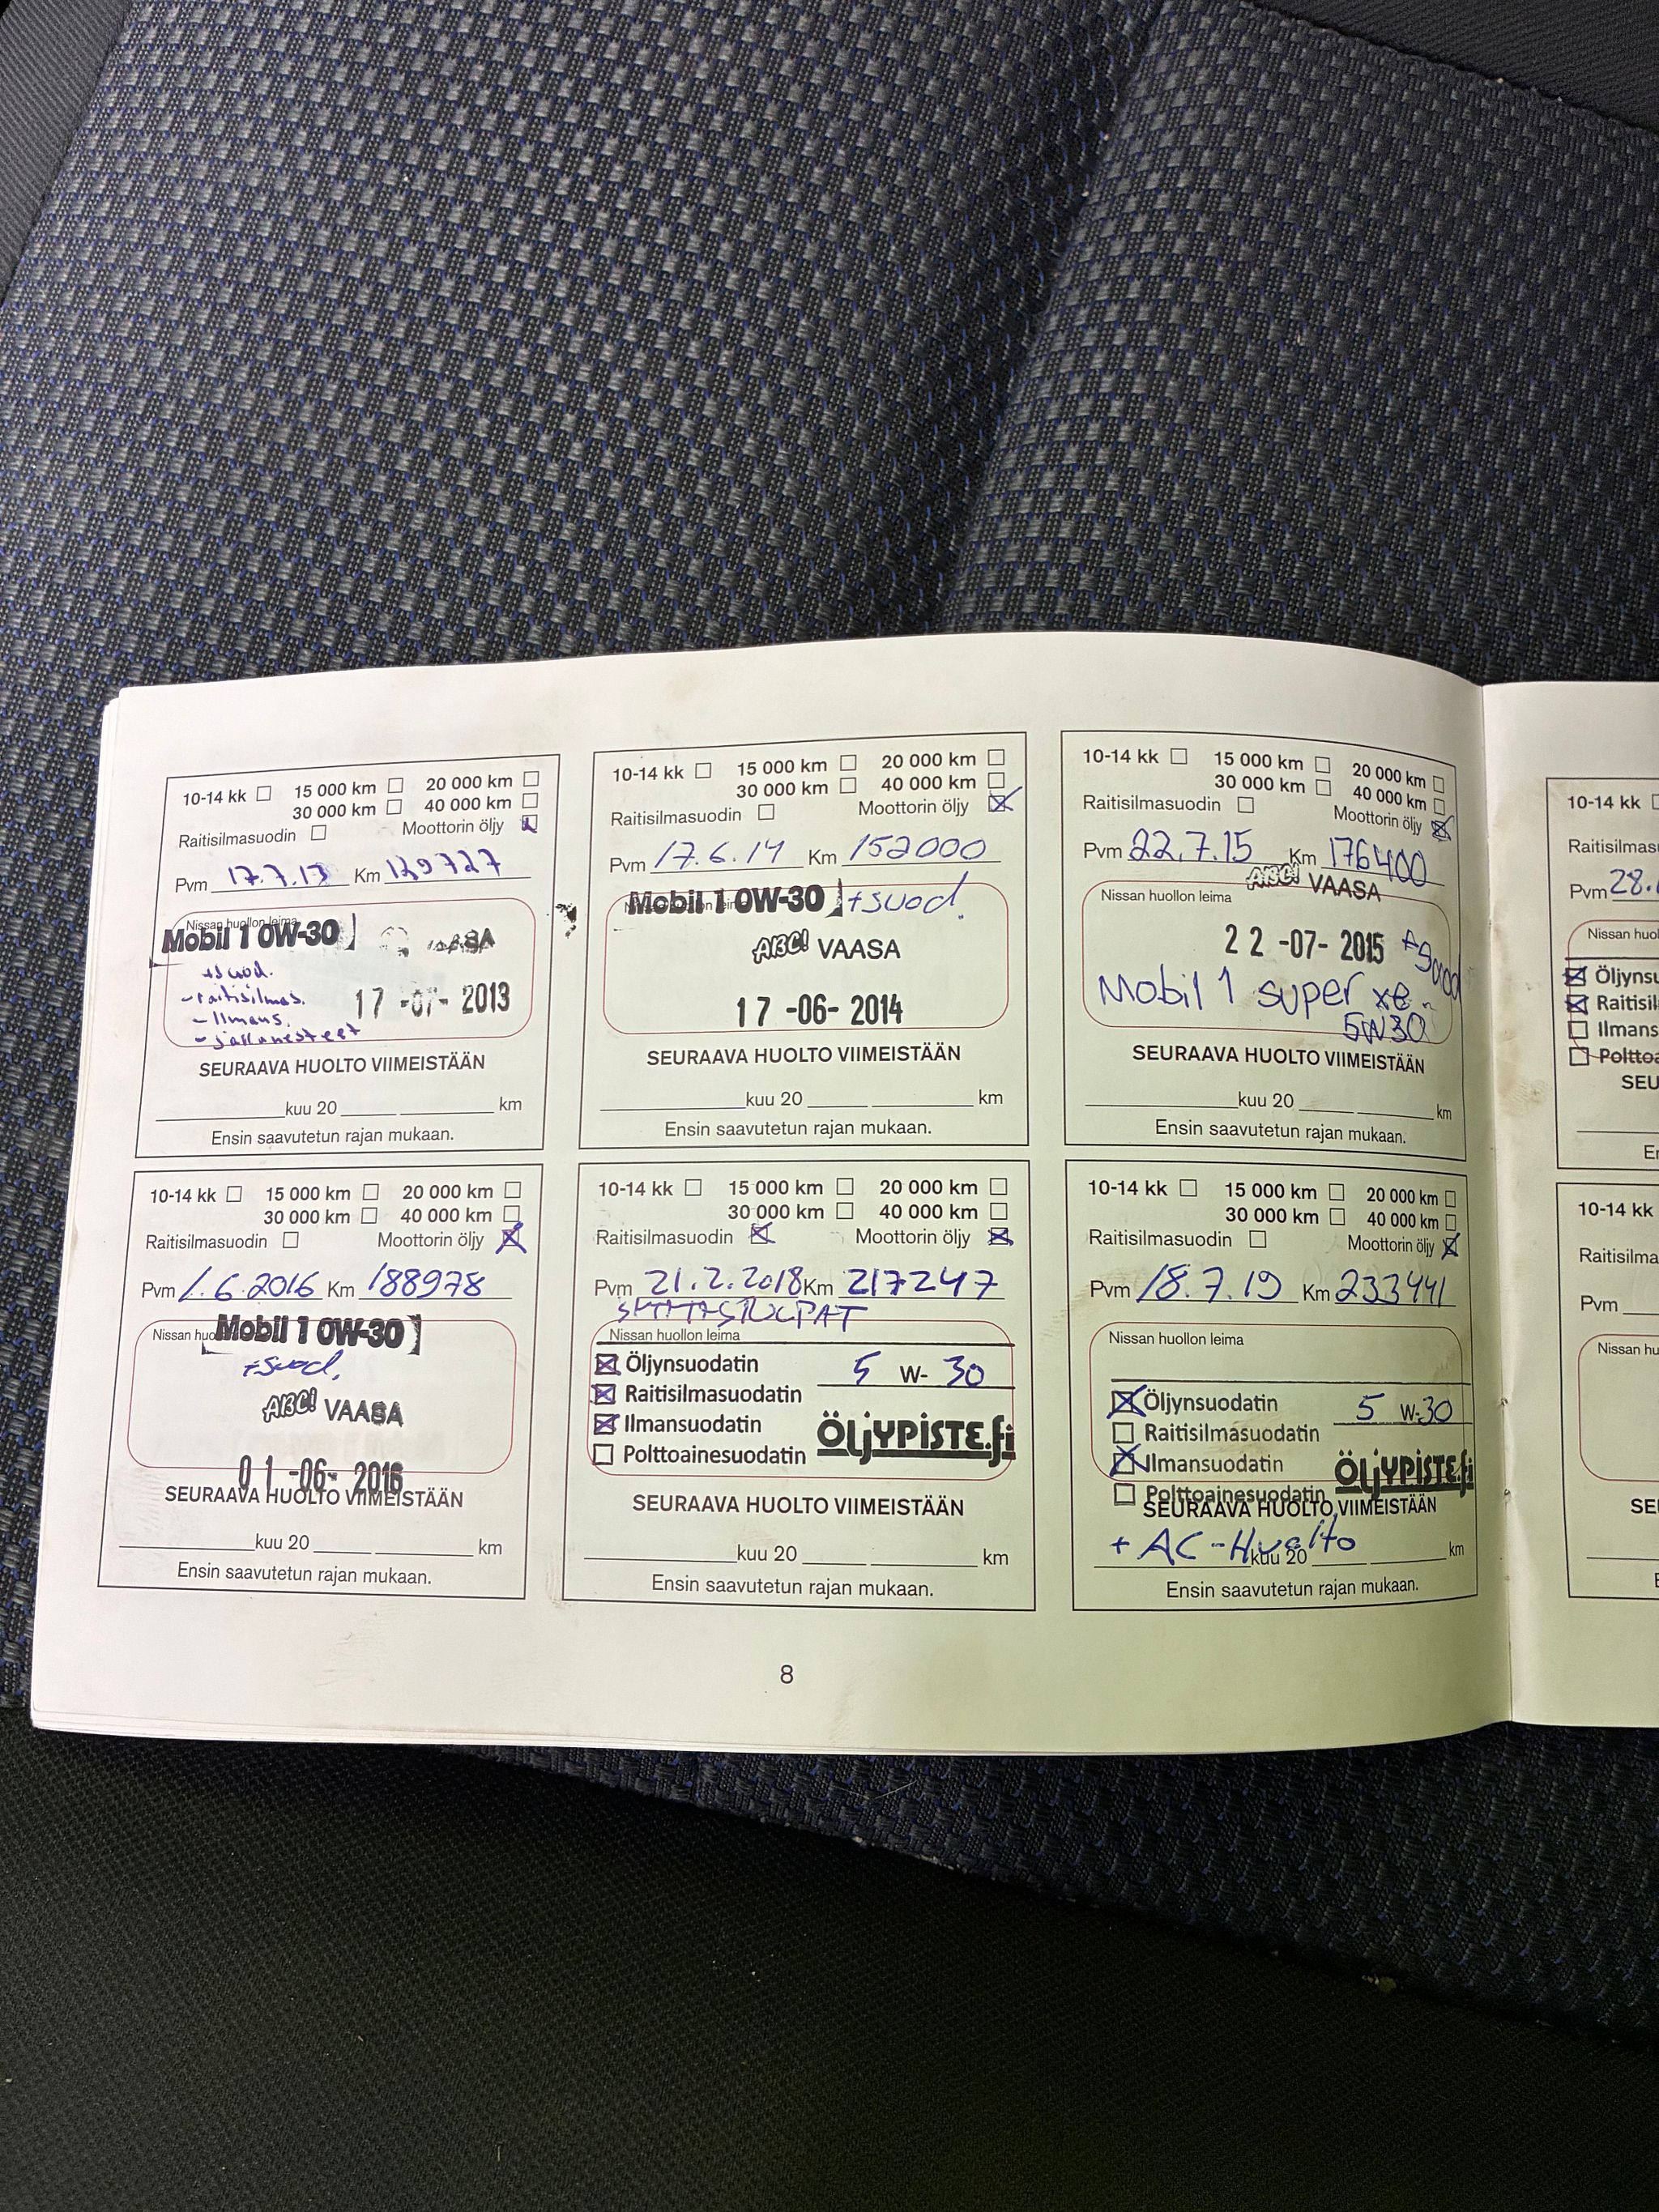 10-14 kk 15 000 km 20 000 km
30 000 km 40 000 km
Raitisilmasuodin Moottorin öljy
Pvm 17.7.13 Km 129727
Nissan huollon leima
Mobil 1 0W-30 VAASA
+suod.
-raitisilmas.
-Ilmans.
-jarrunesteet
17 -07- 2013
SEURAAVA HUOLTO VIIMEISTÄÄN
kuu 20 km
Ensin saavutetun rajan mukaan.
10-14 kk 15 000 km 20 000 km
30 000 km 40 000 km
Raitisilmasuodin Moottorin öljy
Pvm 17.6.14 Km 152000
Mobil 1 0W-30 +suod.
ABC! VAASA
17 -06- 2014
SEURAAVA HUOLTO VIIMEISTÄÄN
kuu 20 km
Ensin saavutetun rajan mukaan.
10-14 kk 15 000 km 20 000 km
30 000 km 40 000 km
Raitisilmasuodin Moottorin öljy
Pvm 22.7.15 Km 176400
ABC! VAASA
Nissan huollon leima
22 -07- 2015
Mobil 1 super xe
5W30
SEURAAVA HUOLTO VIIMEISTÄÄN
kuu 20 km
Ensin saavutetun rajan mukaan.
10-14 kk 15 000 km 20 000 km
30 000 km 40 000 km
Raitisilmasuodin Moottorin öljy
Pvm 1.6.2016 Km 188978
Nissan huo
Mobil 1 0W-30
+suod.
ABC! VAASA
01 -06- 2016
SEURAAVA HUOLTO VIIMEISTÄÄN
kuu 20 km
Ensin saavutetun rajan mukaan.
10-14 kk 15 000 km 20 000 km
30 000 km 40 000 km
Raitisilmasuodin Moottorin öljy
Pvm 21.2.2018 Km 217247
Nissan huollon leima
Öljynsuodatin 5 W- 30
Raitisilmasuodatin
Ilmansuodatin ÖLJYPISTE.fi
Polttoainesuodatin
SEURAAVA HUOLTO VIIMEISTÄÄN
kuu 20 km
Ensin saavutetun rajan mukaan.
10-14 kk 15 000 km 20 000 km
30 000 km 40 000 km
Raitisilmasuodin Moottorin öljy
Pvm 18.7.19 Km 233441
Nissan huollon leima
Öljynsuodatin 5 W-30
Raitisilmasuodatin
Ilmansuodatin ÖLJYPISTE.fi
Polttoainesuodatin
SEURAAVA HUOLTO VIIMEISTÄÄN
+ AC-Huolto
kuu 20 km
Ensin saavutetun rajan mukaan.
8
10-14 kk
Raitisilmas
Pvm 28.
Nissan huol
Öljynsu
Raitisil
Ilmans
Polttoa
SEU
10-14 kk
Raitisilma
Pvm
Nissan hu
SE